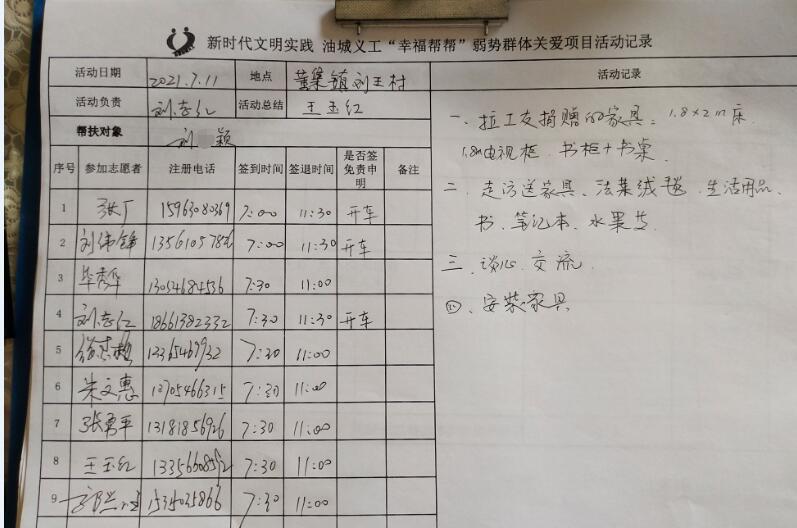 新时代文明实践 油城义工“幸福帮帮”弱势群体关爱项目活动记录
活动日期 2021.7.11 地点 董集镇刘王村
活动负责 刘志红 活动总结 王玉红
帮扶对象 刘 颖
序号 参加志愿者 注册电话 签到时间 签退时间 是否签免责申明 备注
1 张广 15963080369 7:00 11:30 开车
2 刘伟锋 7:00 11:30 开车
3 毕秀华 13054684536 7:30 11:00
4 刘志红 18661382332 7:30 11:30 开车
5 7:30 11:00
6 朱文惠 13705466315 7:30 11:00
7 张勇平 13181856926 7:30 11:00
8 王玉红 7:30 11:00
9 7:30 11:00
活动记录
一、拉工友捐赠的家具、1.8×2m床
1.8m电视柜、书柜+书桌
二、走访送家具、法莱绒毯、生活用品、
书、笔记本、水果等
三、谈心、交流
四、安装家具